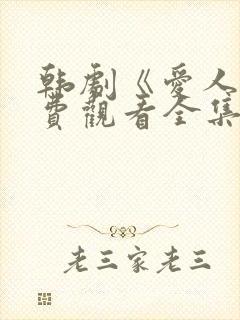 韩剧《爱人
費觀看全集
老三家老三